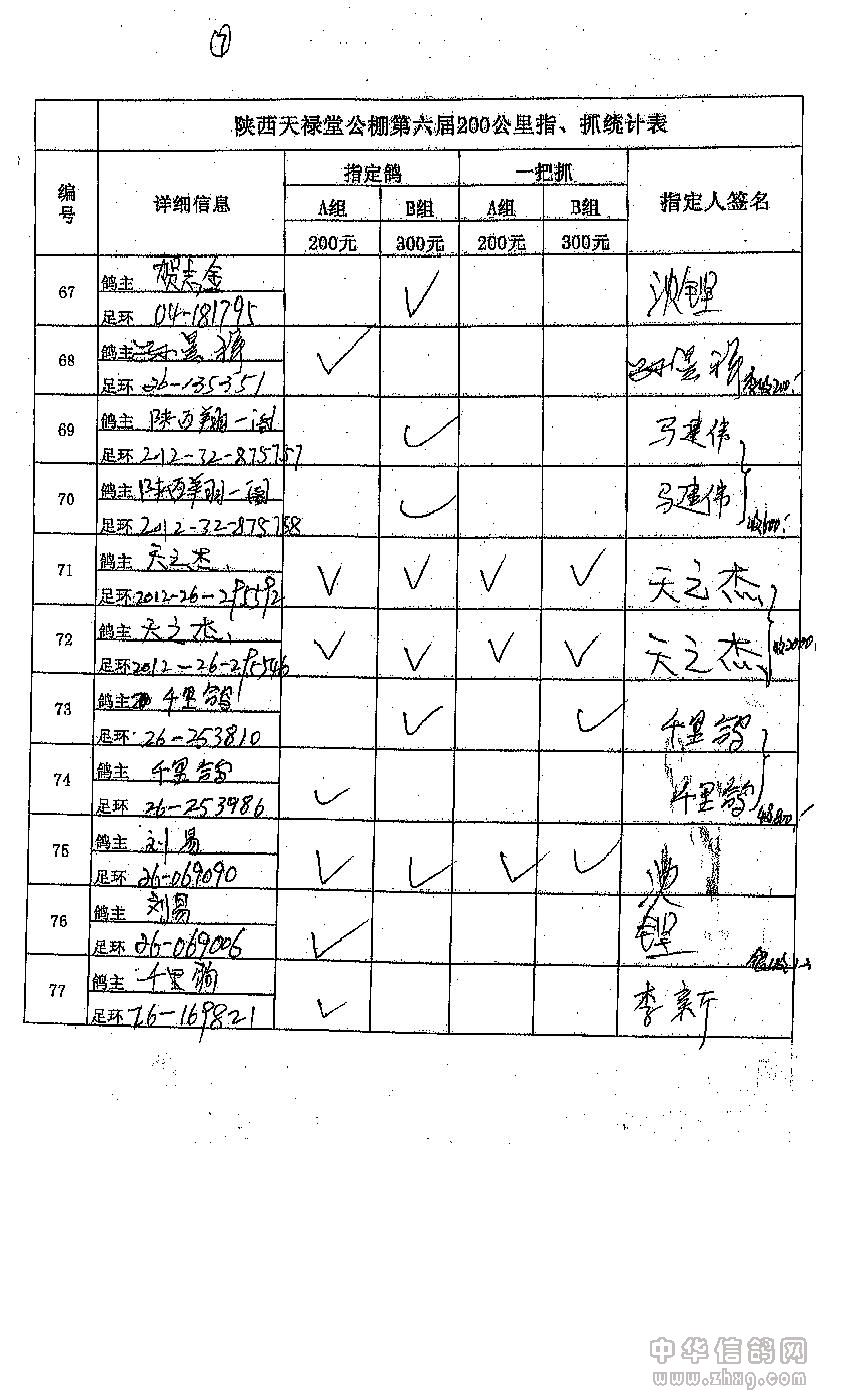 ⑦
陕西天禄堂公棚第六届200公里指、抓统计表
编号 详细信息 指定鸽 一把抓 指定人签名
A组 B组 A组 B组
200元 300元 200元 300元
67 鸽主 贺志金 ✓
足环 04-181795
68 鸽主 ✓
足环 26-135351
69 鸽主 陕西翔一阁 ✓ 马建伟
足环 2012-32-875757
70 鸽主 陕西翔一阁 ✓ 马建伟
足环 2012-32-875758
71 鸽主 天之杰 ✓ ✓ ✓ ✓ 天之杰
足环 2012-26-295592
72 鸽主 天之杰 ✓ ✓ ✓ ✓ 天之杰
足环 2012-26-295546
73 鸽主 千里鸽 ✓ ✓ 千里鸽
足环 26-253810
74 鸽主 千里鸽 ✓ 千里鸽
足环 26-253986
75 鸽主 刘易 ✓ ✓ ✓ ✓
足环 26-069090
76 鸽主 刘易 ✓
足环 26-069006
77 鸽主 千里驹 ✓ 李新
足环 26-169821
中华信鸽网
www.zhxg.com